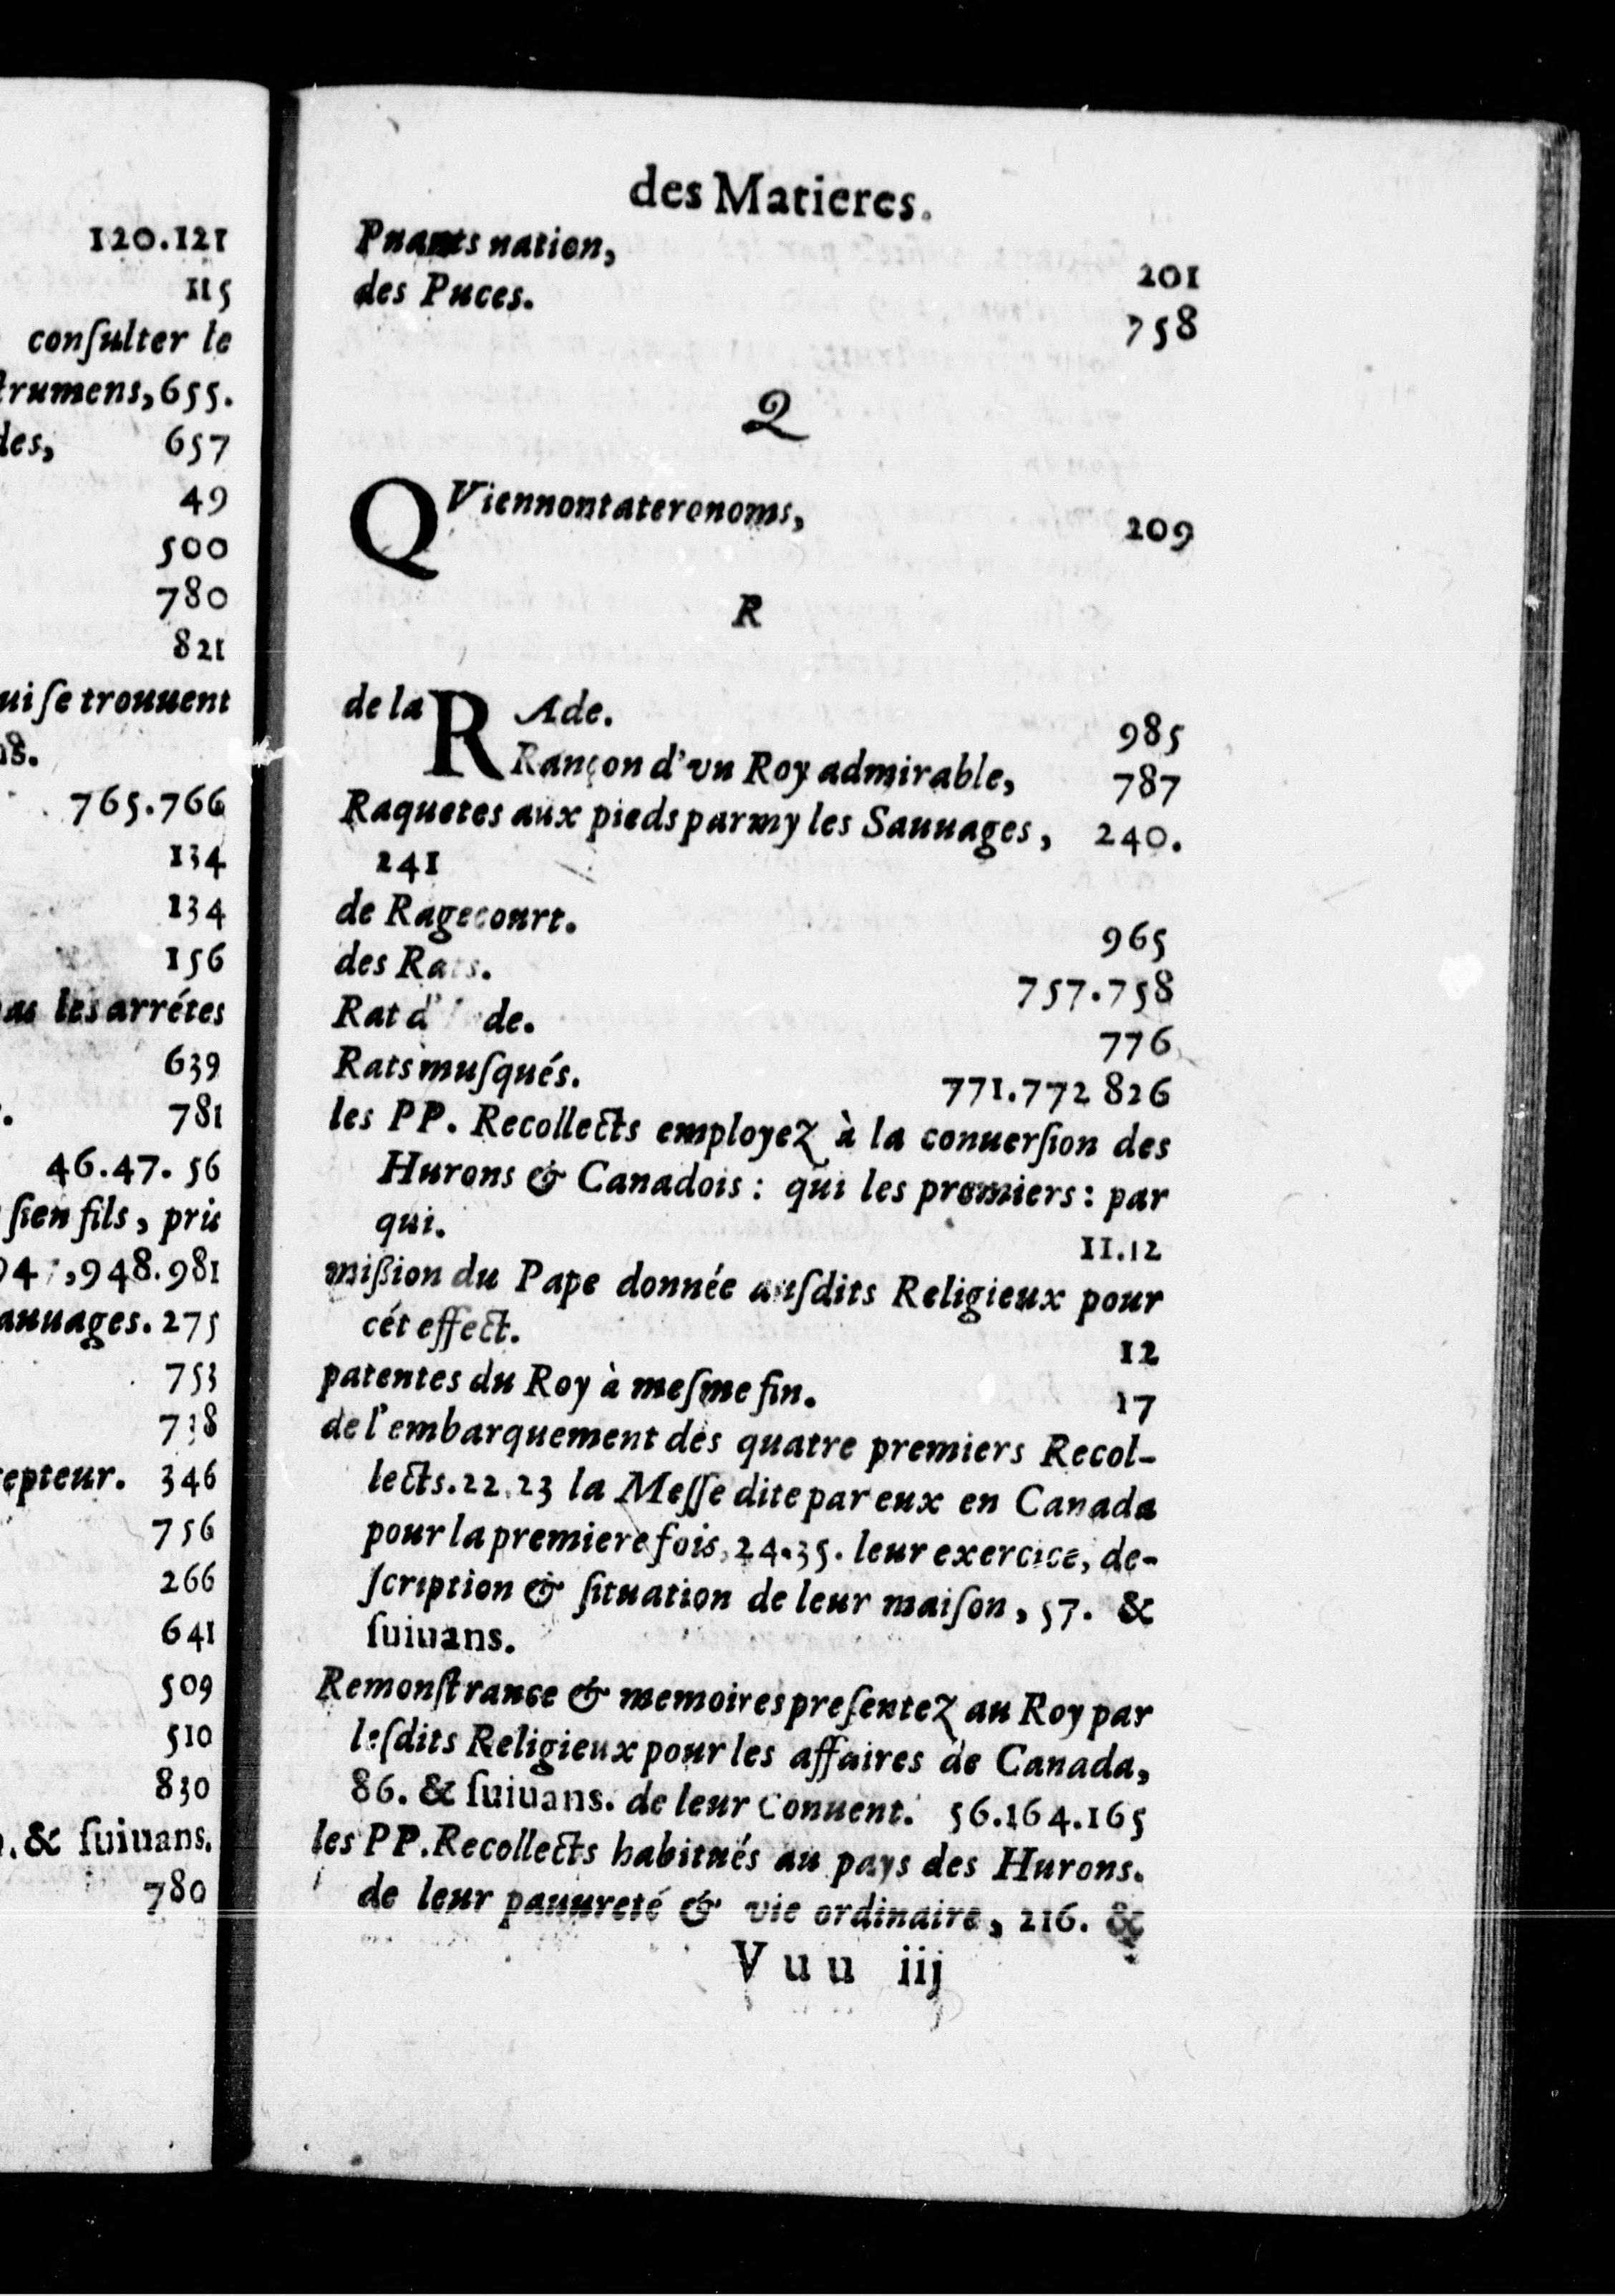 120.121
115
conſulter le
trumens, 655.
des, 657
49
500
780
821
ui ſe trouuent
765.766
134
134
156
les arrétes
639
781
46.47.56
ſien fils, pris
948.981
auuages. 275
753
738
cepteur. 346
756
266
641
509
510
830
. & ſuiuans.
780
des Matieres.
Puants nation, 201
des Puces. 758
Q
QViennontateronoms, 209
R
de la RAde. 985
Rançon d'vn Roy admirable, 787
Raquetes aux pieds parmy les Sauuages, 240.
241
de Ragecourt. 965
des Rats. 757.758
Rat d' de. 776
Rats muſqués. 771.772 826
les PP. Recollects employez à la conuerſion des
Hurons & Canadois : qui les premiers : par
qui. 11.12
miſſion du Pape donnée auſdits Religieux pour
cét effect. 12
patentes du Roy à meſme fin. 17
de l'embarquement des quatre premiers Recol-
lects. 22.23 la Meſſe dite par eux en Canada
pour la premiere fois, 24.35. leur exercice, de-
ſcription & ſituation de leur maiſon, 57. &
ſuiuans.
Remonſtrance & memoires preſentez au Roy par
leſdits Religieux pour les affaires de Canada,
86. & ſuiuans. de leur Conuent. 56.164.165
les PP. Recollects habitués au pays des Hurons.
de leur pauureté & vie ordinaire, 216. &
Vuu iij